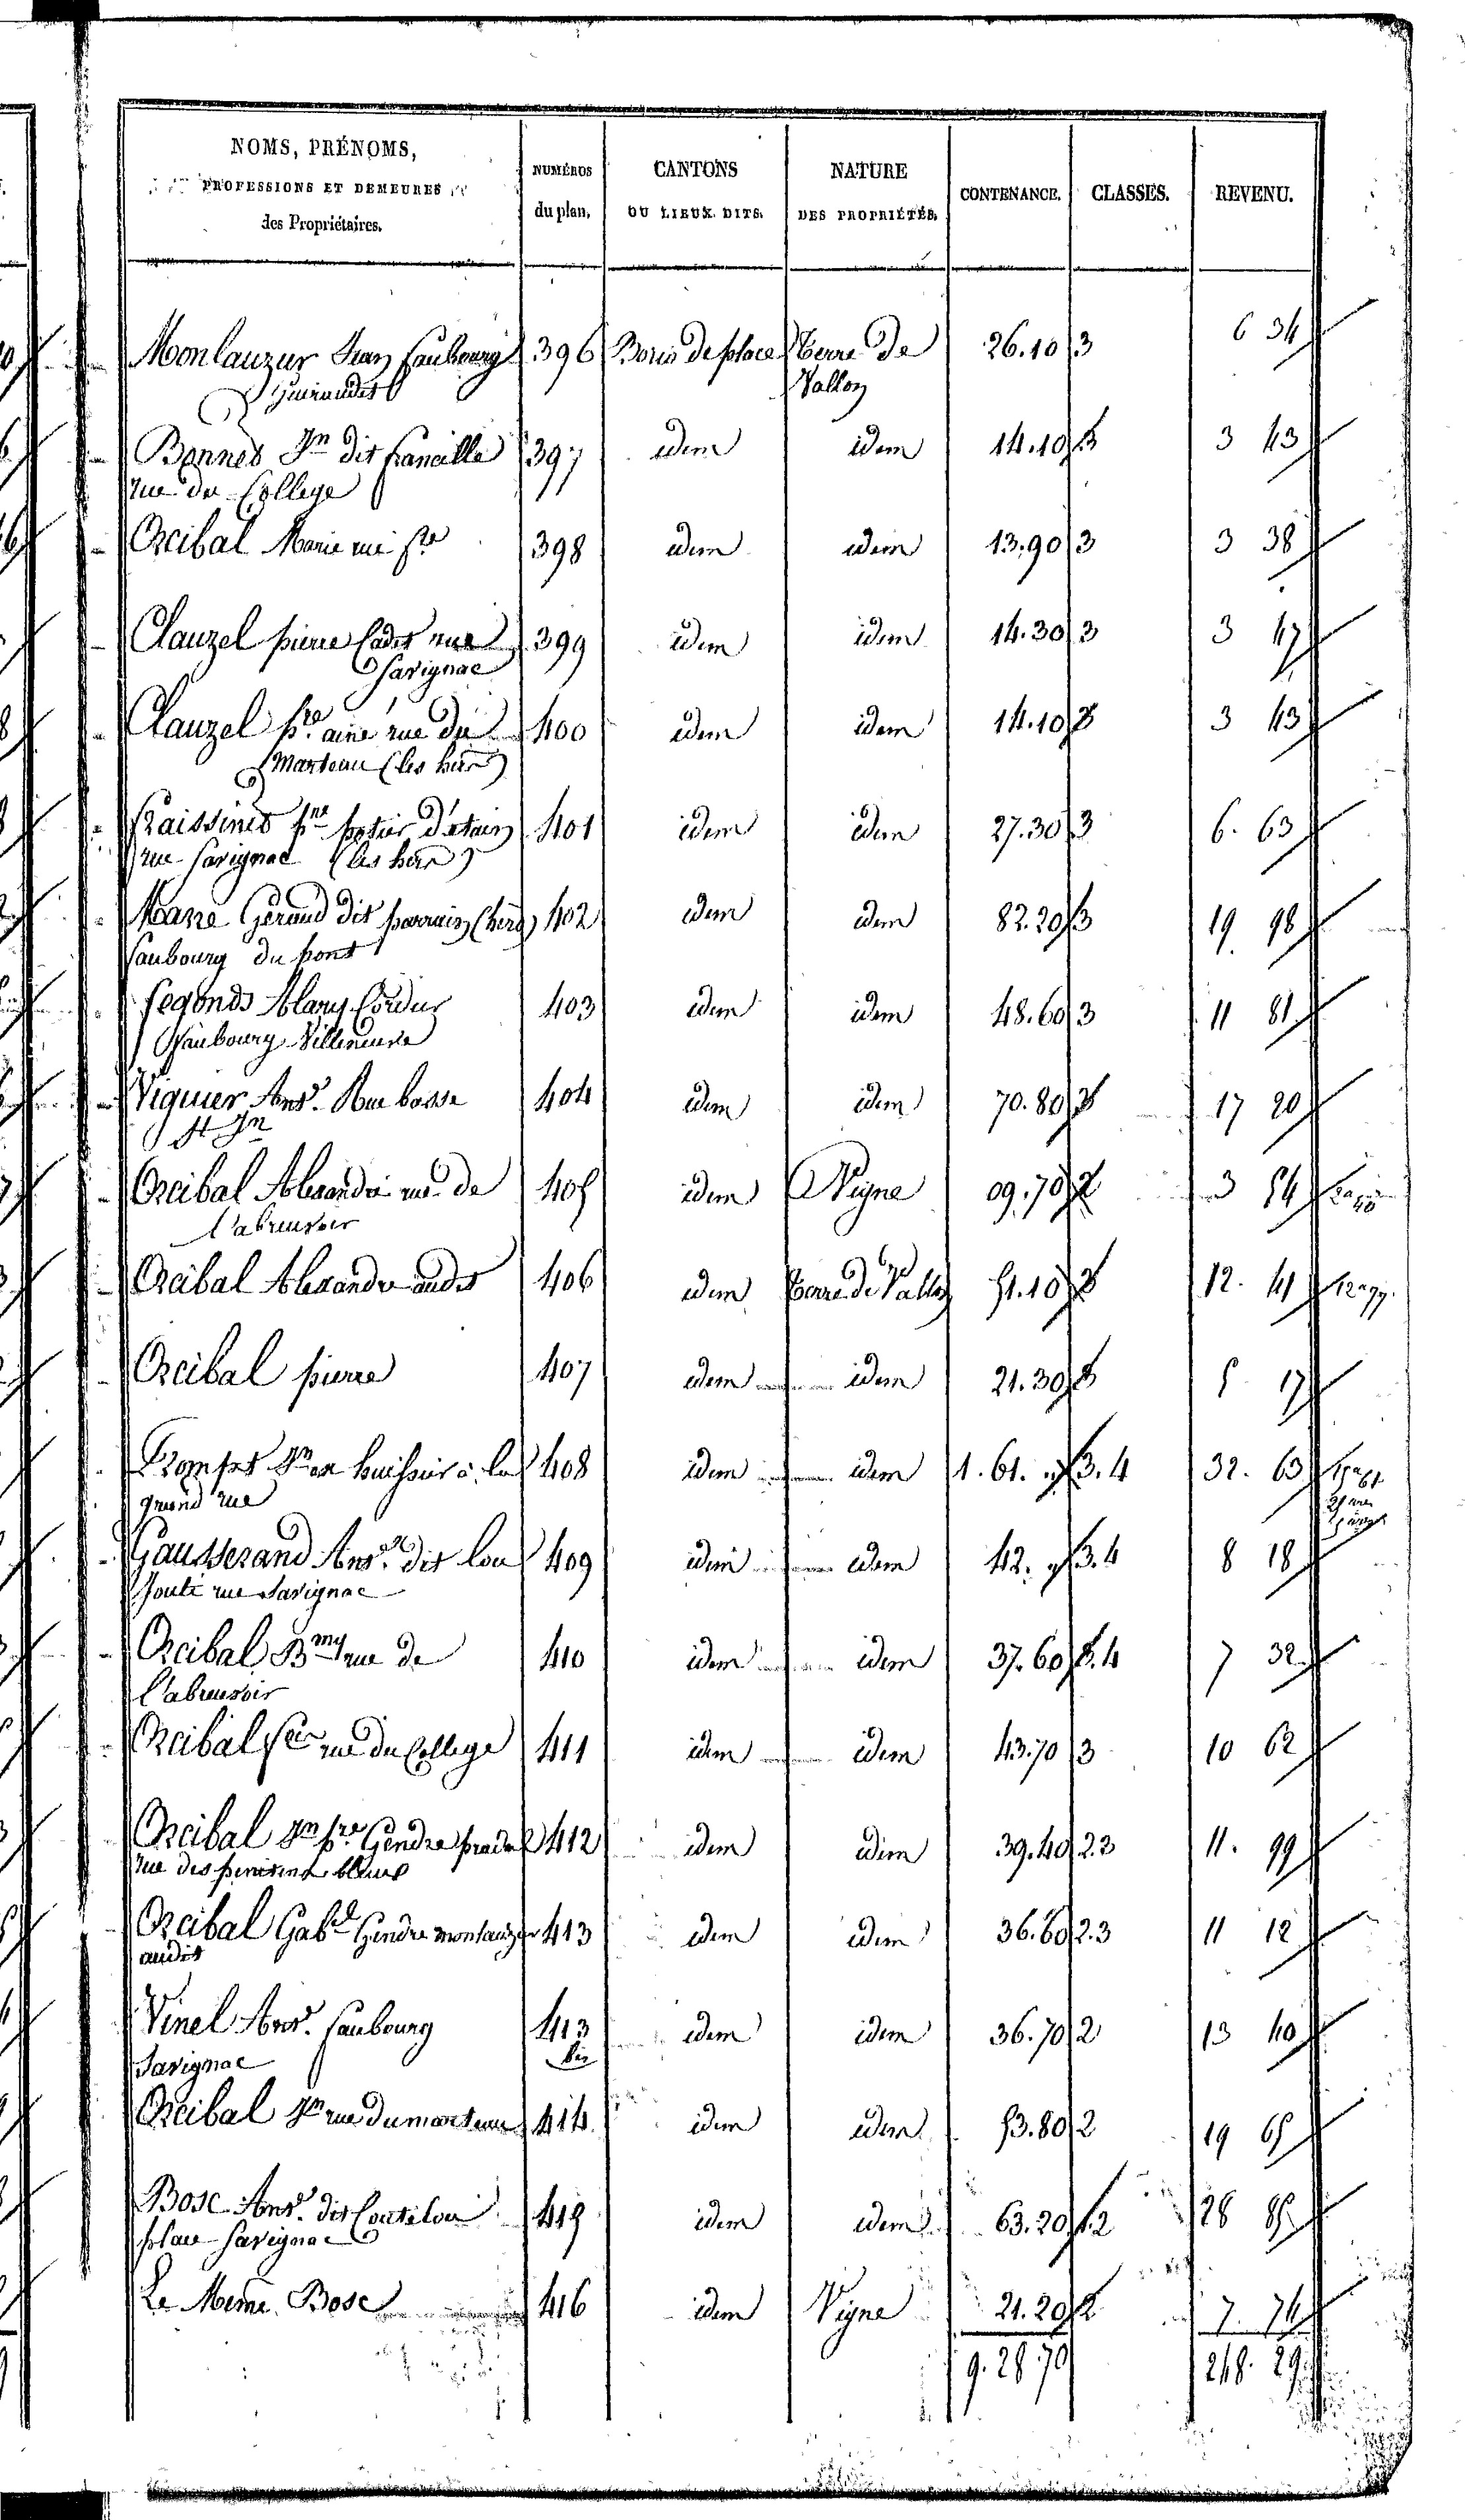 NOMS, PRÉNOMS,
PROFESSIONS ET DEMEURES
des Propriétaires.
NUMÉROS
du plan.
CANTONS
OU LIEUX DITS.
NATURE
DES PROPRIÉTÉS.
CONTENANCE.
CLASSES.
REVENU.
Monlauzur Jean faubourg 396 Boris de place Terre de 26.10 3 6 34
Guiraudet Vallon
Bonnet Jn dit 397 idem idem 14.10 3 3 43
rue du College
Orcibal Marie 398 idem idem 13.90 3 3 38
Clauzel pierre Cadet rue 399 idem idem 14.30 3 3 47
Savignac
Clauzel pre ainé rue du 400 idem idem 14.10 3 3 43
Marteau (les hers)
Raissinet pre potier d'étain 401 idem idem 27.30 3 6. 63
rue Savignac (les hers)
Géraud dit (hers) 402 idem idem 82.20 3 19. 98
faubourg du pont
Segonds Alary Cordier 403 idem idem 48.60 3 11 81
faubourg Villeneuve
Viguier Ant. Rue basse 404 idem idem 70.80 3 17 20
St Jn
Orcibal Alexandre rue de 405 idem Vigne 09.70 2 3 54
l'abreuvoir
Orcibal Alexandre audit 406 idem Terre de Vallon 51.10 3 12. 41
Orcibal pierre 407 idem idem 21.30 3 5 17
huissier à la 408 idem idem 1.61. " 3.4 32. 63
grand rue
Gausserand Ant. dit lou 409 idem idem 42. " 3.4 8 18
rue Savignac
Orcibal Bmy rue de 410 idem idem 37.60 3.4 7 32
l'abreuvoir
Orcibal rue du College 411 idem idem 43.70 3 10 62
Orcibal Jn pre Gendre pradel 412 idem idem 39.40 2.3 11. 99
rue des penitens bleus
Orcibal Gabel Gendre monlauzur 413 idem idem 36.60 2.3 11 12
audit
Vinel Ant. faubourg 413 idem idem 36.70 2 13 40
Savignac bis
Orcibal Jn rue du marteau 414 idem idem 53.80 2 19 65
Bosc Ant. dit 415 idem idem 63.20 1.2 26 85
place Savignac
Le Meme Bosc 416 idem Vigne 21.20 2 7. 74
9.28 70 248. 29